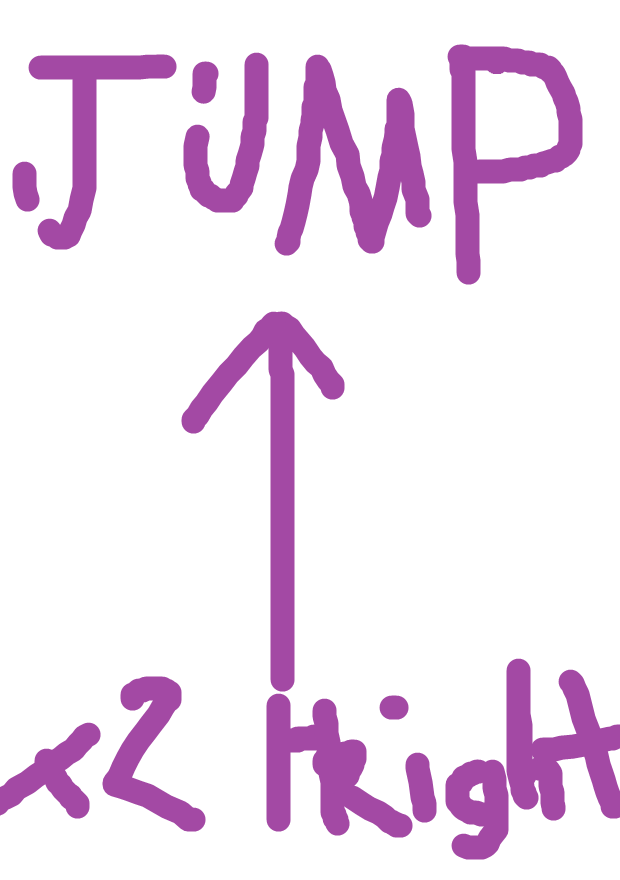 JUMP
x2 Height